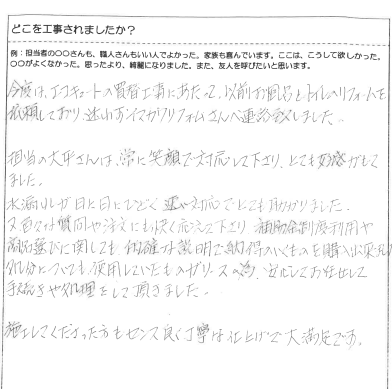 どこを工事されましたか？
例：担当者の〇〇さんも、職人さんもいい人でよかった。家族も喜んでいます。ここは、こうして欲しかった。
〇〇がよくなかった。思ったより、綺麗になりました。また、友人を呼びたいと思います。
今度は、エコキュートの買替工事にあたって、以前お風呂とトイレのリフォームを
依頼しており、迷いなくイズカリフォームさんへ連絡致しました。
担当の大平さんは、常に笑顔で対応して下さり、とても好感がもて
ました。
水漏れが日に日にひどく 速い対応でとても助かりました。
又 質問や注文にも快く応じて下さり 補助金制度利用や
商品選びに関しても 的確な説明で納得のいくものを購入出来
処分についても、使用していたものがリースの為、安心してお任せして
手続きや処理をして頂きました。
施工してくださった方もセンス良く丁寧な仕上げで大満足です。